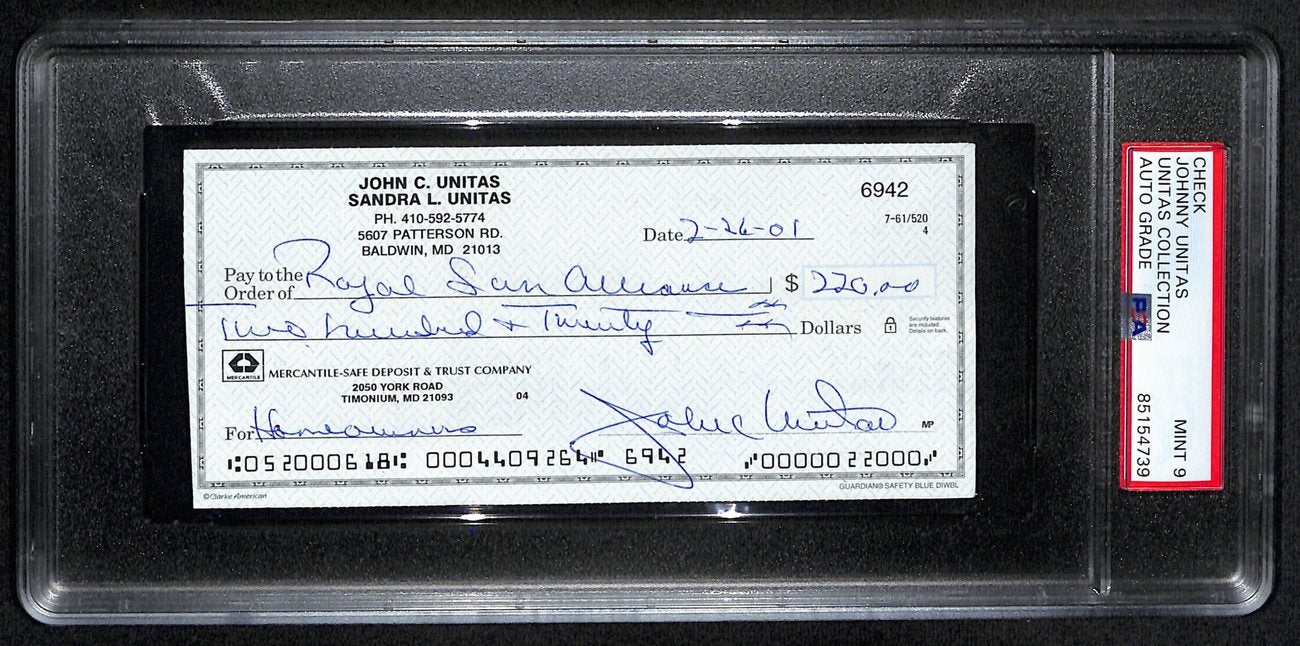 JOHN C. UNITAS
SANDRA L. UNITAS
PH. 410-592-5774
5607 PATTERSON RD.
BALDWIN, MD 21013
6942
7-61/520
4
Date 2-26-01
Pay to the
Order of Royal Sun Alliance $ 220.00
Two hundred & Twenty Dollars
Security features
are included.
Details on back.
MERCANTILE
MERCANTILE-SAFE DEPOSIT & TRUST COMPANY
2050 YORK ROAD
TIMONIUM, MD 21093 04
For Homeowners John C Unitas MP
⑆052000618⑆ 0004409264⑈ 6942 ⑈0000022000⑈
©Clarke American
GUARDIAN® SAFETY BLUE DIWBL
CHECK
JOHNNY UNITAS
UNITAS COLLECTION
AUTO GRADE
MINT 9
85154739
PSA